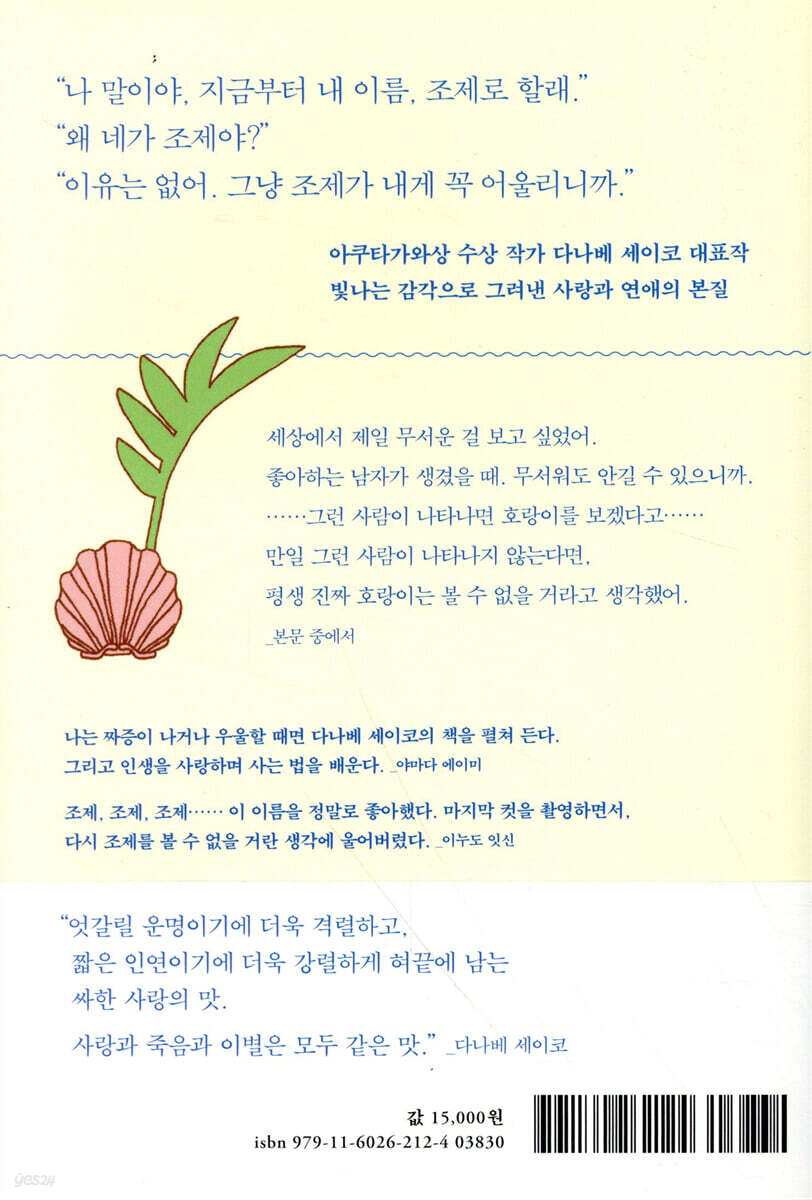 “나 말이야, 지금부터 내 이름, 조제로 할래.”
“왜 네가 조제야?”
“이유는 없어. 그냥 조제가 내게 꼭 어울리니까.”
아쿠타가와상 수상 작가 다나베 세이코 대표작
빛나는 감각으로 그려낸 사랑과 연애의 본질
세상에서 제일 무서운 걸 보고 싶었어.
좋아하는 남자가 생겼을 때. 무서워도 안길 수 있으니까.
……그런 사람이 나타나면 호랑이를 보겠다고……
만일 그런 사람이 나타나지 않는다면,
평생 진짜 호랑이는 볼 수 없을 거라고 생각했어.
_본문 중에서
나는 짜증이 나거나 우울할 때면 다나베 세이코의 책을 펼쳐 든다.
그리고 인생을 사랑하며 사는 법을 배운다. _야마다 에이미
조제, 조제, 조제…… 이 이름을 정말로 좋아했다. 마지막 컷을 촬영하면서,
다시 조제를 볼 수 없을 거란 생각에 울어버렸다. _이누도 잇신
“엇갈릴 운명이기에 더욱 격렬하고,
짧은 인연이기에 더욱 강렬하게 혀끝에 남는
싸한 사랑의 맛.
사랑과 죽음과 이별은 모두 같은 맛.” _다나베 세이코
값 15,000원
isbn 979-11-6026-212-4 03830
yes24